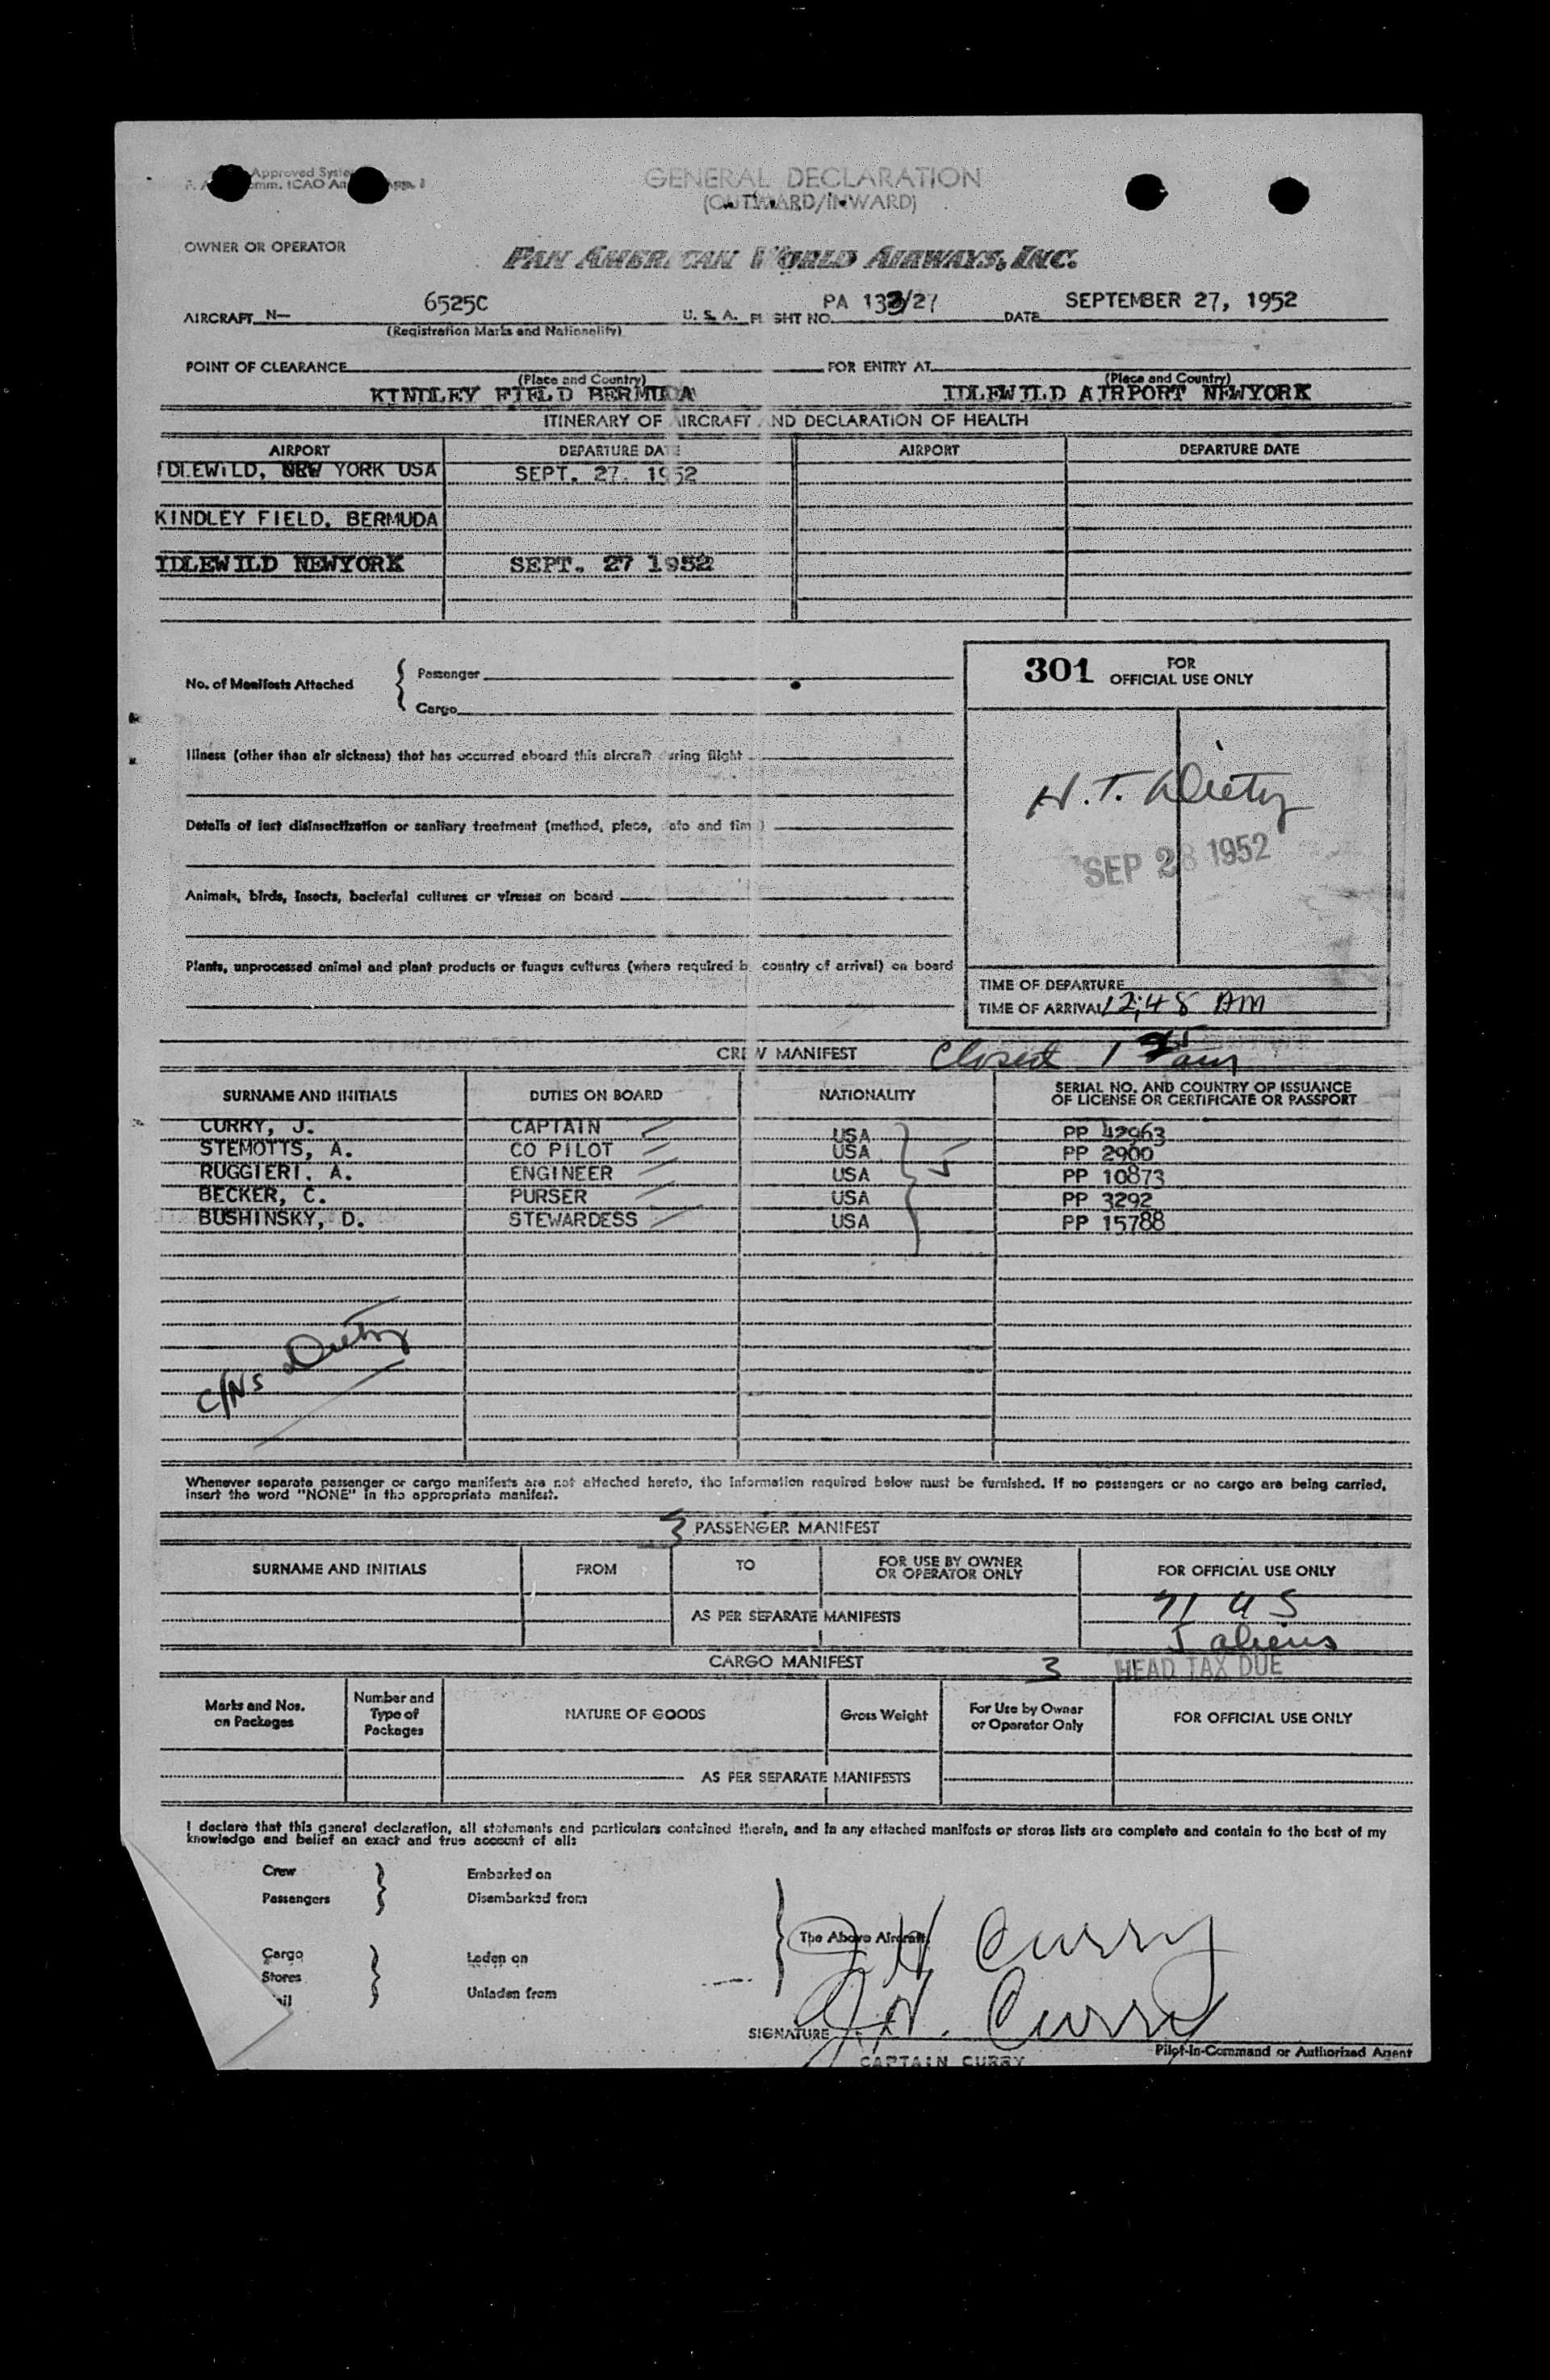 Approved
ICAO
GENERAL DECLARATION
(OUTWARD/INWARD)
OWNER OR OPERATOR
PAN AMERICAN WORLD AIRWAYS, INC.
AIRCRAFT N— 6525C U. S. A. FLIGHT NO. PA 133/27 DATE SEPTEMBER 27, 1952
(Registration Marks and Nationality)
POINT OF CLEARANCE FOR ENTRY AT
(Place and Country) (Place and Country)
KINDLEY FIELD BERMUDA IDLEWILD AIRPORT NEWYORK
ITINERARY OF AIRCRAFT AND DECLARATION OF HEALTH
AIRPORT DEPARTURE DATE AIRPORT DEPARTURE DATE
IDLEWILD, NEW YORK USA SEPT. 27. 1952
KINDLEY FIELD. BERMUDA
IDLEWILD NEWYORK SEPT. 27 1952
No. of Manifests Attached { Passenger
Cargo
301 FOR
OFFICIAL USE ONLY
Illness (other than air sickness) that has occurred aboard this aircraft during flight
Details of last disinsectization or sanitary treatment (method, place, date and time)
SEP 28 1952
Animals, birds, insects, bacterial cultures or viruses on board
Plants, unprocessed animal and plant products or fungus cultures (where required by country of arrival) on board
TIME OF DEPARTURE
TIME OF ARRIVAL 12:48 AM
CREW MANIFEST Closed
SURNAME AND INITIALS DUTIES ON BOARD NATIONALITY SERIAL NO. AND COUNTRY OF ISSUANCE
OF LICENSE OR CERTIFICATE OR PASSPORT
CURRY, J. CAPTAIN USA PP 42963
STEMOTTS, A. CO PILOT USA PP 2900
RUGGIERI. A. ENGINEER USA PP 10873
BECKER, C. PURSER USA PP 3292
BUSHINSKY, D. STEWARDESS USA PP 15788
5
C/NS
Whenever separate passenger or cargo manifests are not attached hereto, the information required below must be furnished. If no passengers or no cargo are being carried,
insert the word "NONE" in the appropriate manifest.
3 PASSENGER MANIFEST
SURNAME AND INITIALS FROM TO FOR USE BY OWNER
OR OPERATOR ONLY FOR OFFICIAL USE ONLY
AS PER SEPARATE MANIFESTS
71 US
5 aliens
CARGO MANIFEST 3 HEAD TAX DUE
Marks and Nos.
on Packages Number and
Type of
Packages NATURE OF GOODS Gross Weight For Use by Owner
or Operator Only FOR OFFICIAL USE ONLY
AS PER SEPARATE MANIFESTS
I declare that this general declaration, all statements and particulars contained therein, and in any attached manifests or stores lists are complete and contain to the best of my
knowledge and belief an exact and true account of all:
Crew Embarked on
Passengers Disembarked from
The Above Aircraft
J H Curry
Cargo Laden on
Stores
Unladen from
SIGNATURE J. H. Curry
CAPTAIN CURRY Pilot-in-Command or Authorized Agent